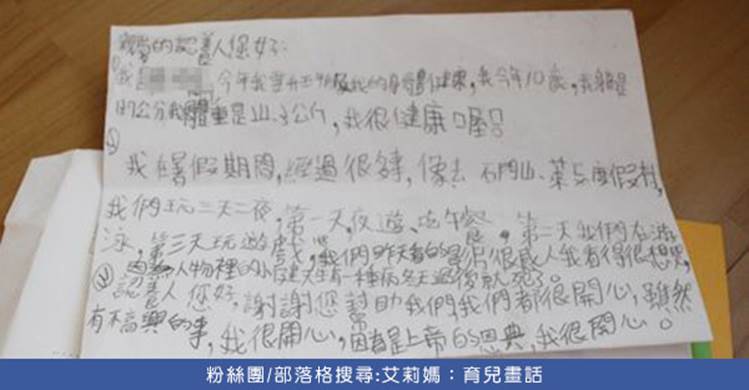 親愛的認養人您好:
① 我 今年我要升五年級我的身體健康,我今年10歲,我身體是
公分我體重是公斤,我很健康喔!
② 我暑假期間,經過很多,像去石門山、渡假村,
我們玩三天二夜,第一天,夜遊、吃午餐,第二天我們在游
泳,第三天玩遊戲,我們昨天看的很感人我看得很想哭,
因為人物裡的小天生有一種病冬天過後就死了。
認養人您好,謝謝您幫助我們,我們都很開心,雖然
有不高興的事,我很開心,因為是上帝的恩典,我很開心。
粉絲團/部落格搜尋:艾莉媽:育兒畫話